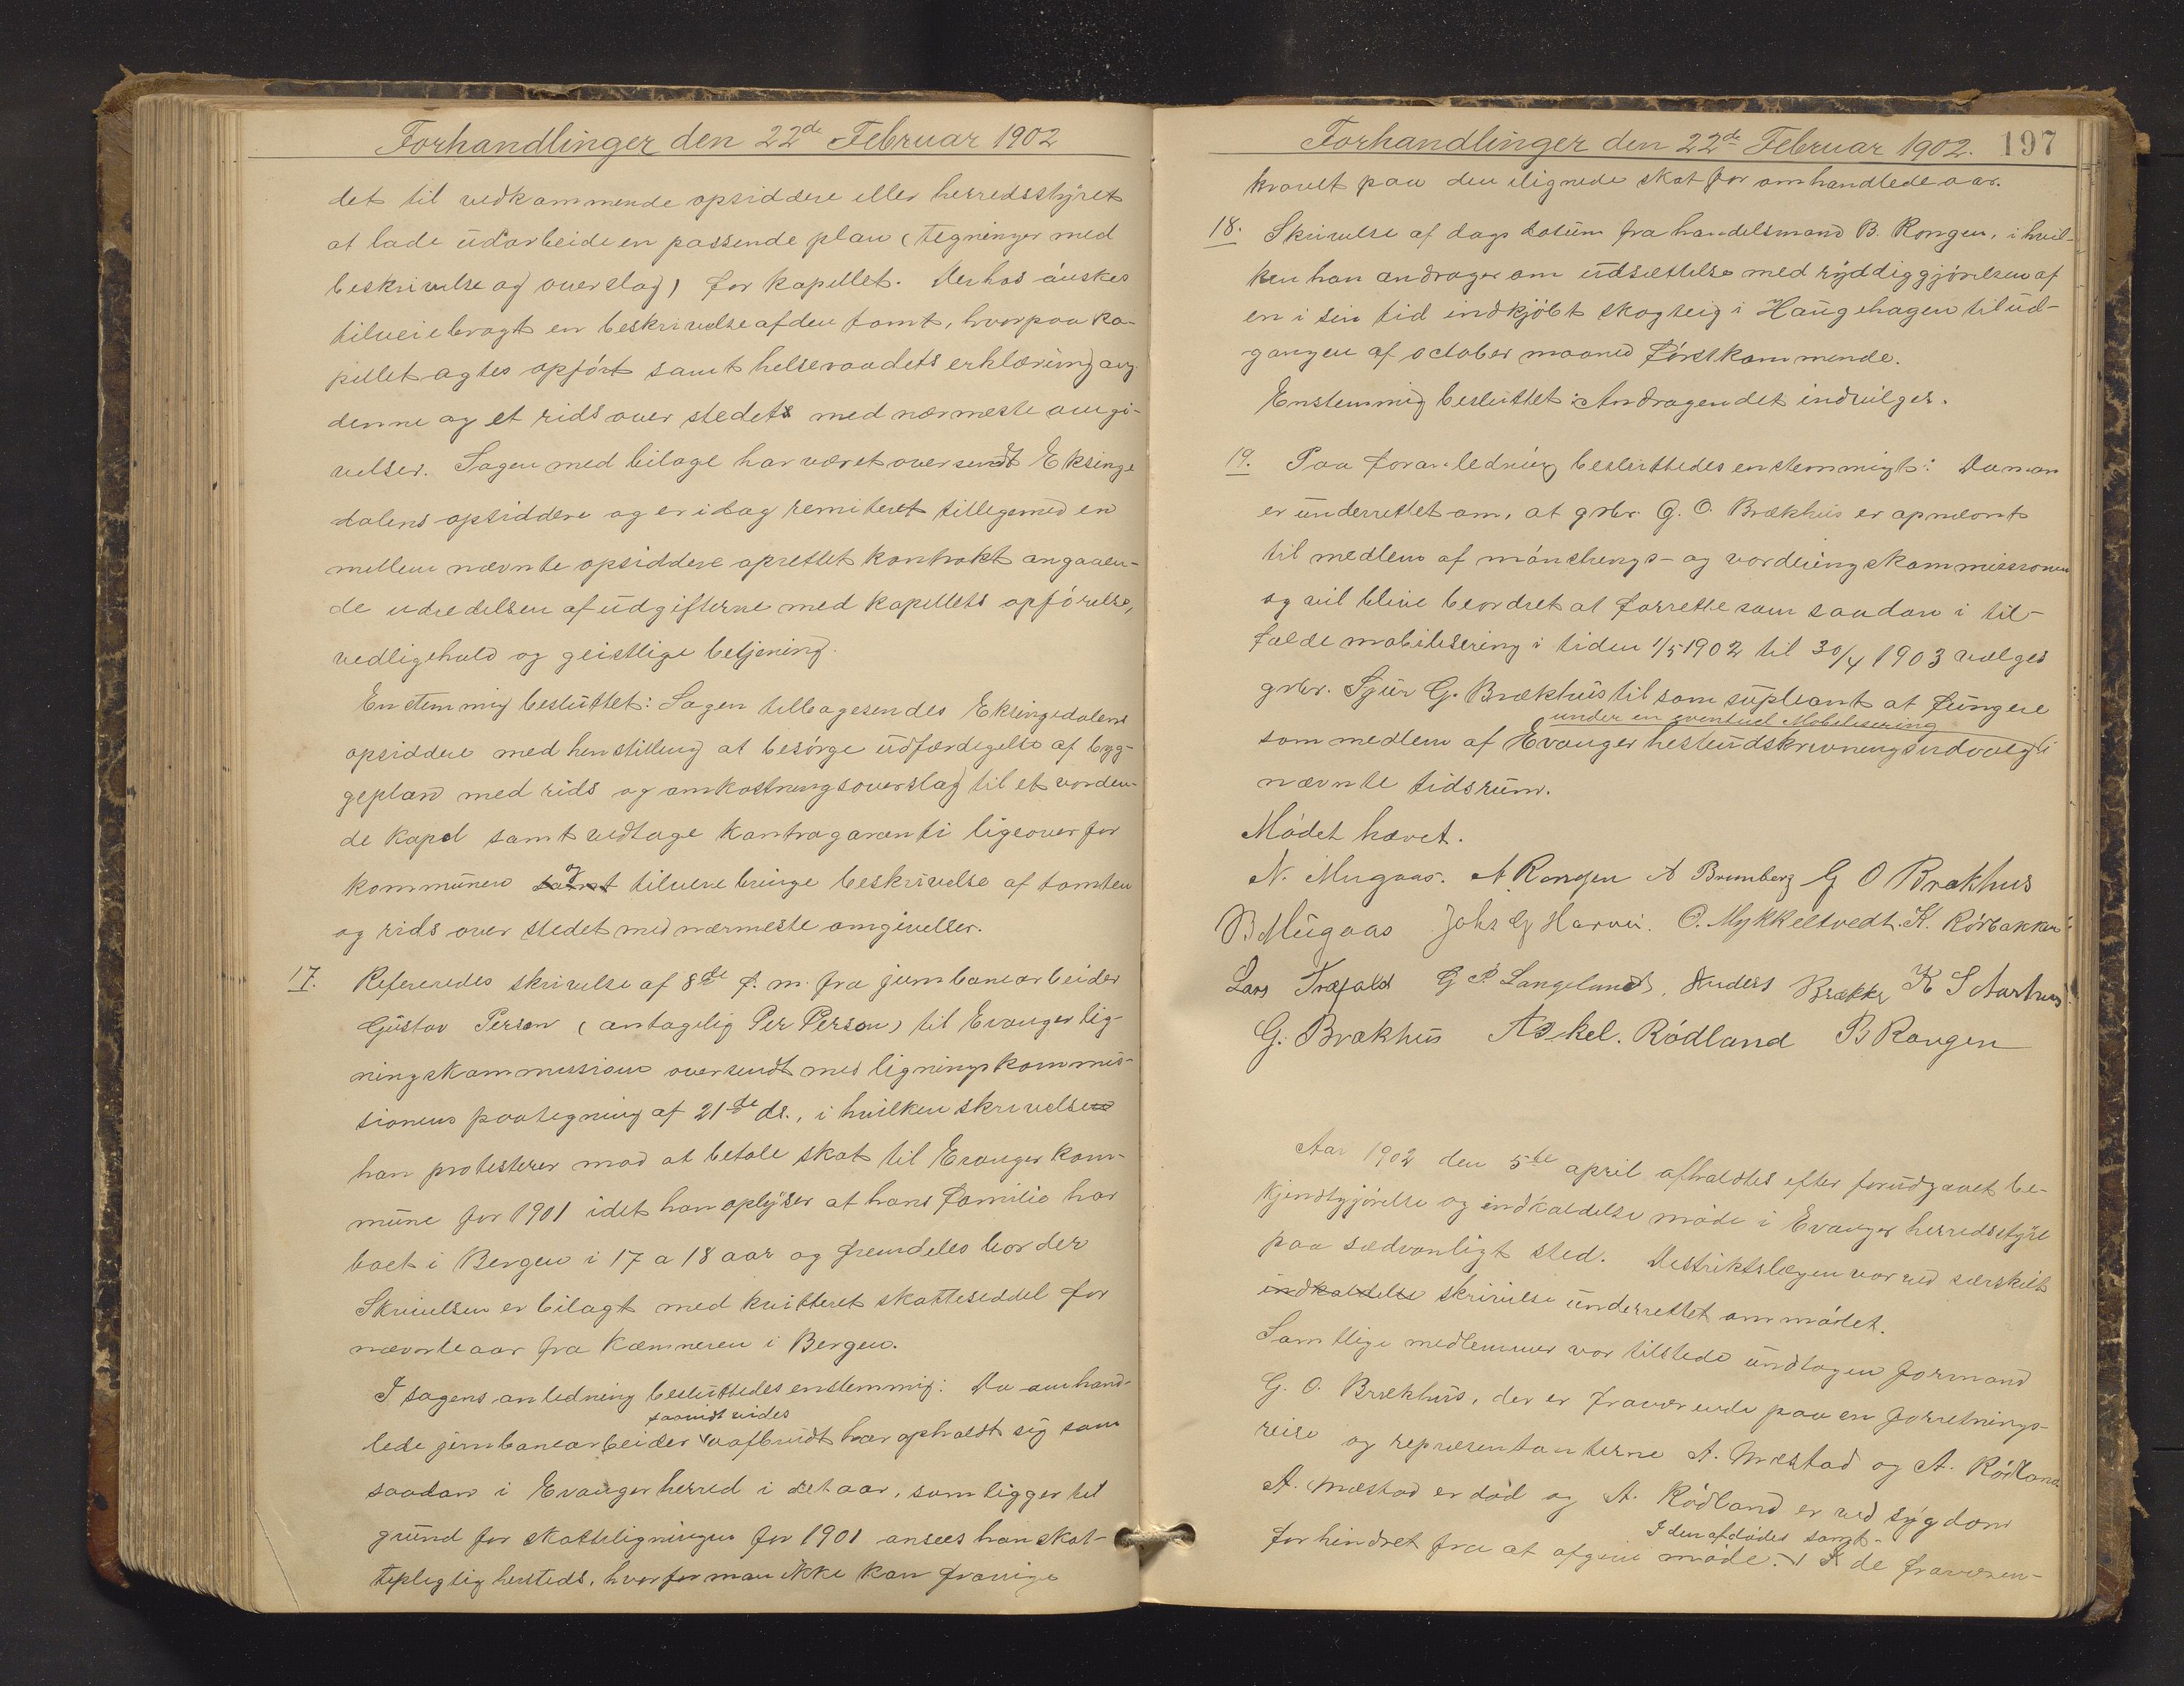 Forhandlinger den 22de Februar 1902
det til vedkommende opsiddere eller herredsstyret
at lade udarbeide en passende plan (tegninger med
beskrivelse og overslag) for kapellet. Derhos ønskes
tilveiebragt en beskrivelse af den tomt, hvorpaa ka-
pellet agtes opført samt helseraadets erklæring ang
denne og et rids over stedets med nærmeste omgi-
velser. Sagen med bilage har været oversendt Eksinge
dalens opsiddere og er idag remiteret tillegemed en
mellem nævnte opsiddere oprettet kontrakt angaaen-
de udredelsen af udgifterne med kapellets opførelse,
vedligehold og geistlige betjening.
Enstemmig besluttet: Sagen tilbagesendes Eksingedalens
opsiddere med henstilling at besørge udfærdigelse af byg-
geplan med rids og omkostningsoverslag til et vorden-
de kapel samt vedtage kontragaranti ligeoverfor
kommunen samt og tilveiebringe beskrivelse af tomten
og rids over stedet med nærmeste omgivelser.
17. Refereredes skrivelse af 8de f. m. fra jernbanearbeider
Gustav Person (antagelig Per Person) til Evanger lig-
ningskommission oversendt med ligningskommis-
sionens paategning af 21de ds., i hvilken skrivelse
han protesterer mod at betale skat til Evanger kom-
mune for 1901 idet han oplyser at hans familie har
boet i Bergen i 17 a 18 aar og fremdeles bor der
Skrivelsen er bilagt med kvitteret skatteseddel for
nævnte aar fra Kæmneren i Bergen.
I sagens anledning besluttedes enstemmig: Da omhand-
saavidt vides
lede jernbanearbeider uafbrudt har opholdt sig som
saadan i Evanger herred i det aar, som ligger til
grund for skatteligningen for 1901 ansees han skat-
tepligtig hersteds, hvorfor man ikke kan fravige
Forhandlinger den 22de Februar 1902. 197
kravet paa den ilignede skat for omhandlede aar.
18. Skrivelse af dags datum fra handelsmand B. Rongen, i hvil-
ken han andrager om udsættelse med ryddiggjørelsen af
en i sin tid indkjøbt skogteig i Haugehagen til ud-
gangen af october maaned førstkommende.
Enstemmig besluttet: Andragendet indvilges.
19. Paa foranledning besluttedes enstemmigt: Da man
er underrettet om, at grbr. G. O. Brækhus er opnævnt
til medlem af mønstrings- og vorderingskommissionen
og vil blive beordret at forrette som saadan i til-
fælde mobilisering i tiden 1/5 1902 til 30/4 1903 vælges
grbr. Sjur G. Brækhus til som supleant at fungere
under en eventuel Mobilisering
som medlem af Evanger hesteudskrivningsudvalg i
nævnte tidsrum.
Mødet hævet.
N. Mugaas. A Rongen A Brunborg G O Brækhus
B Mugaas Johs G Horvei. O. Mykkeltvedt. K. Rørbakken
Lars Træfald G P Langeland, Anders Brække K S Aarhus.
G. Brækhus Askel. Rødland B Rongen
Aar 1902 den 5te april afholdtes efter forudgaaet be-
kjendtgjørelse og indkaldelse møde i Evanger herredsstyre
paa sædvanligt sted. Distriktslægen var ved særskilt
indkaldelse skrivelse underrettet om mødet.
Samtlige medlemmer var tilstede undtagen formand
G. O. Brækhus, der er fraværende paa en forretnings-
reise og repræsentanterne A. Mæstad og A. Rødland
A. Mæstad er død og A. Rødland er ved sygdom
I den afdødes samt
forhindret fra at afgive møde. I de fraværen-